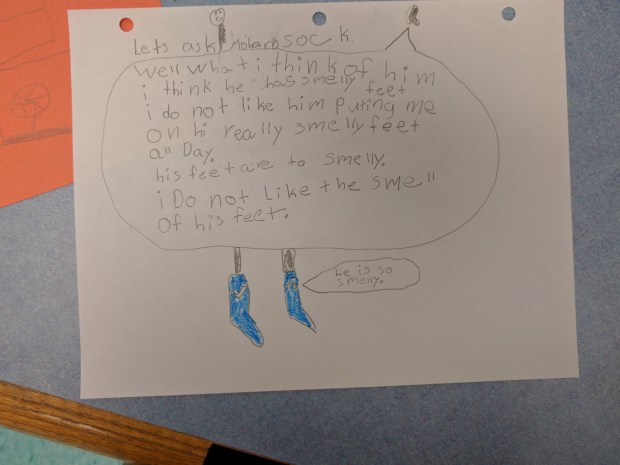 Lets ask Moharo sock.
well what i think of him
i think he has smelly feet
i do not like him puting me
on hi really smelly feet
all Day.
his feet are to smelly.
i Do not Like the smell
Of his feet.
he is so
smelly.